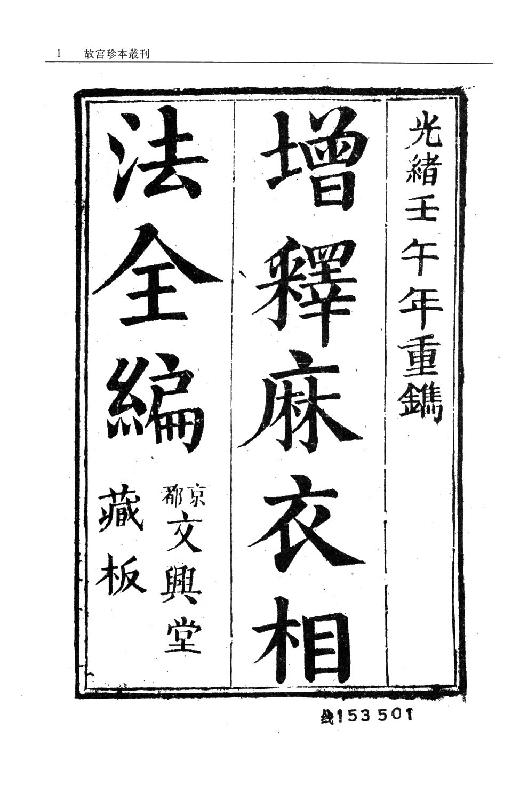 1 故宫珍本叢刊
光緒壬午年重鐫
增釋麻衣相
法全編
京都
文興堂
藏板
线153501